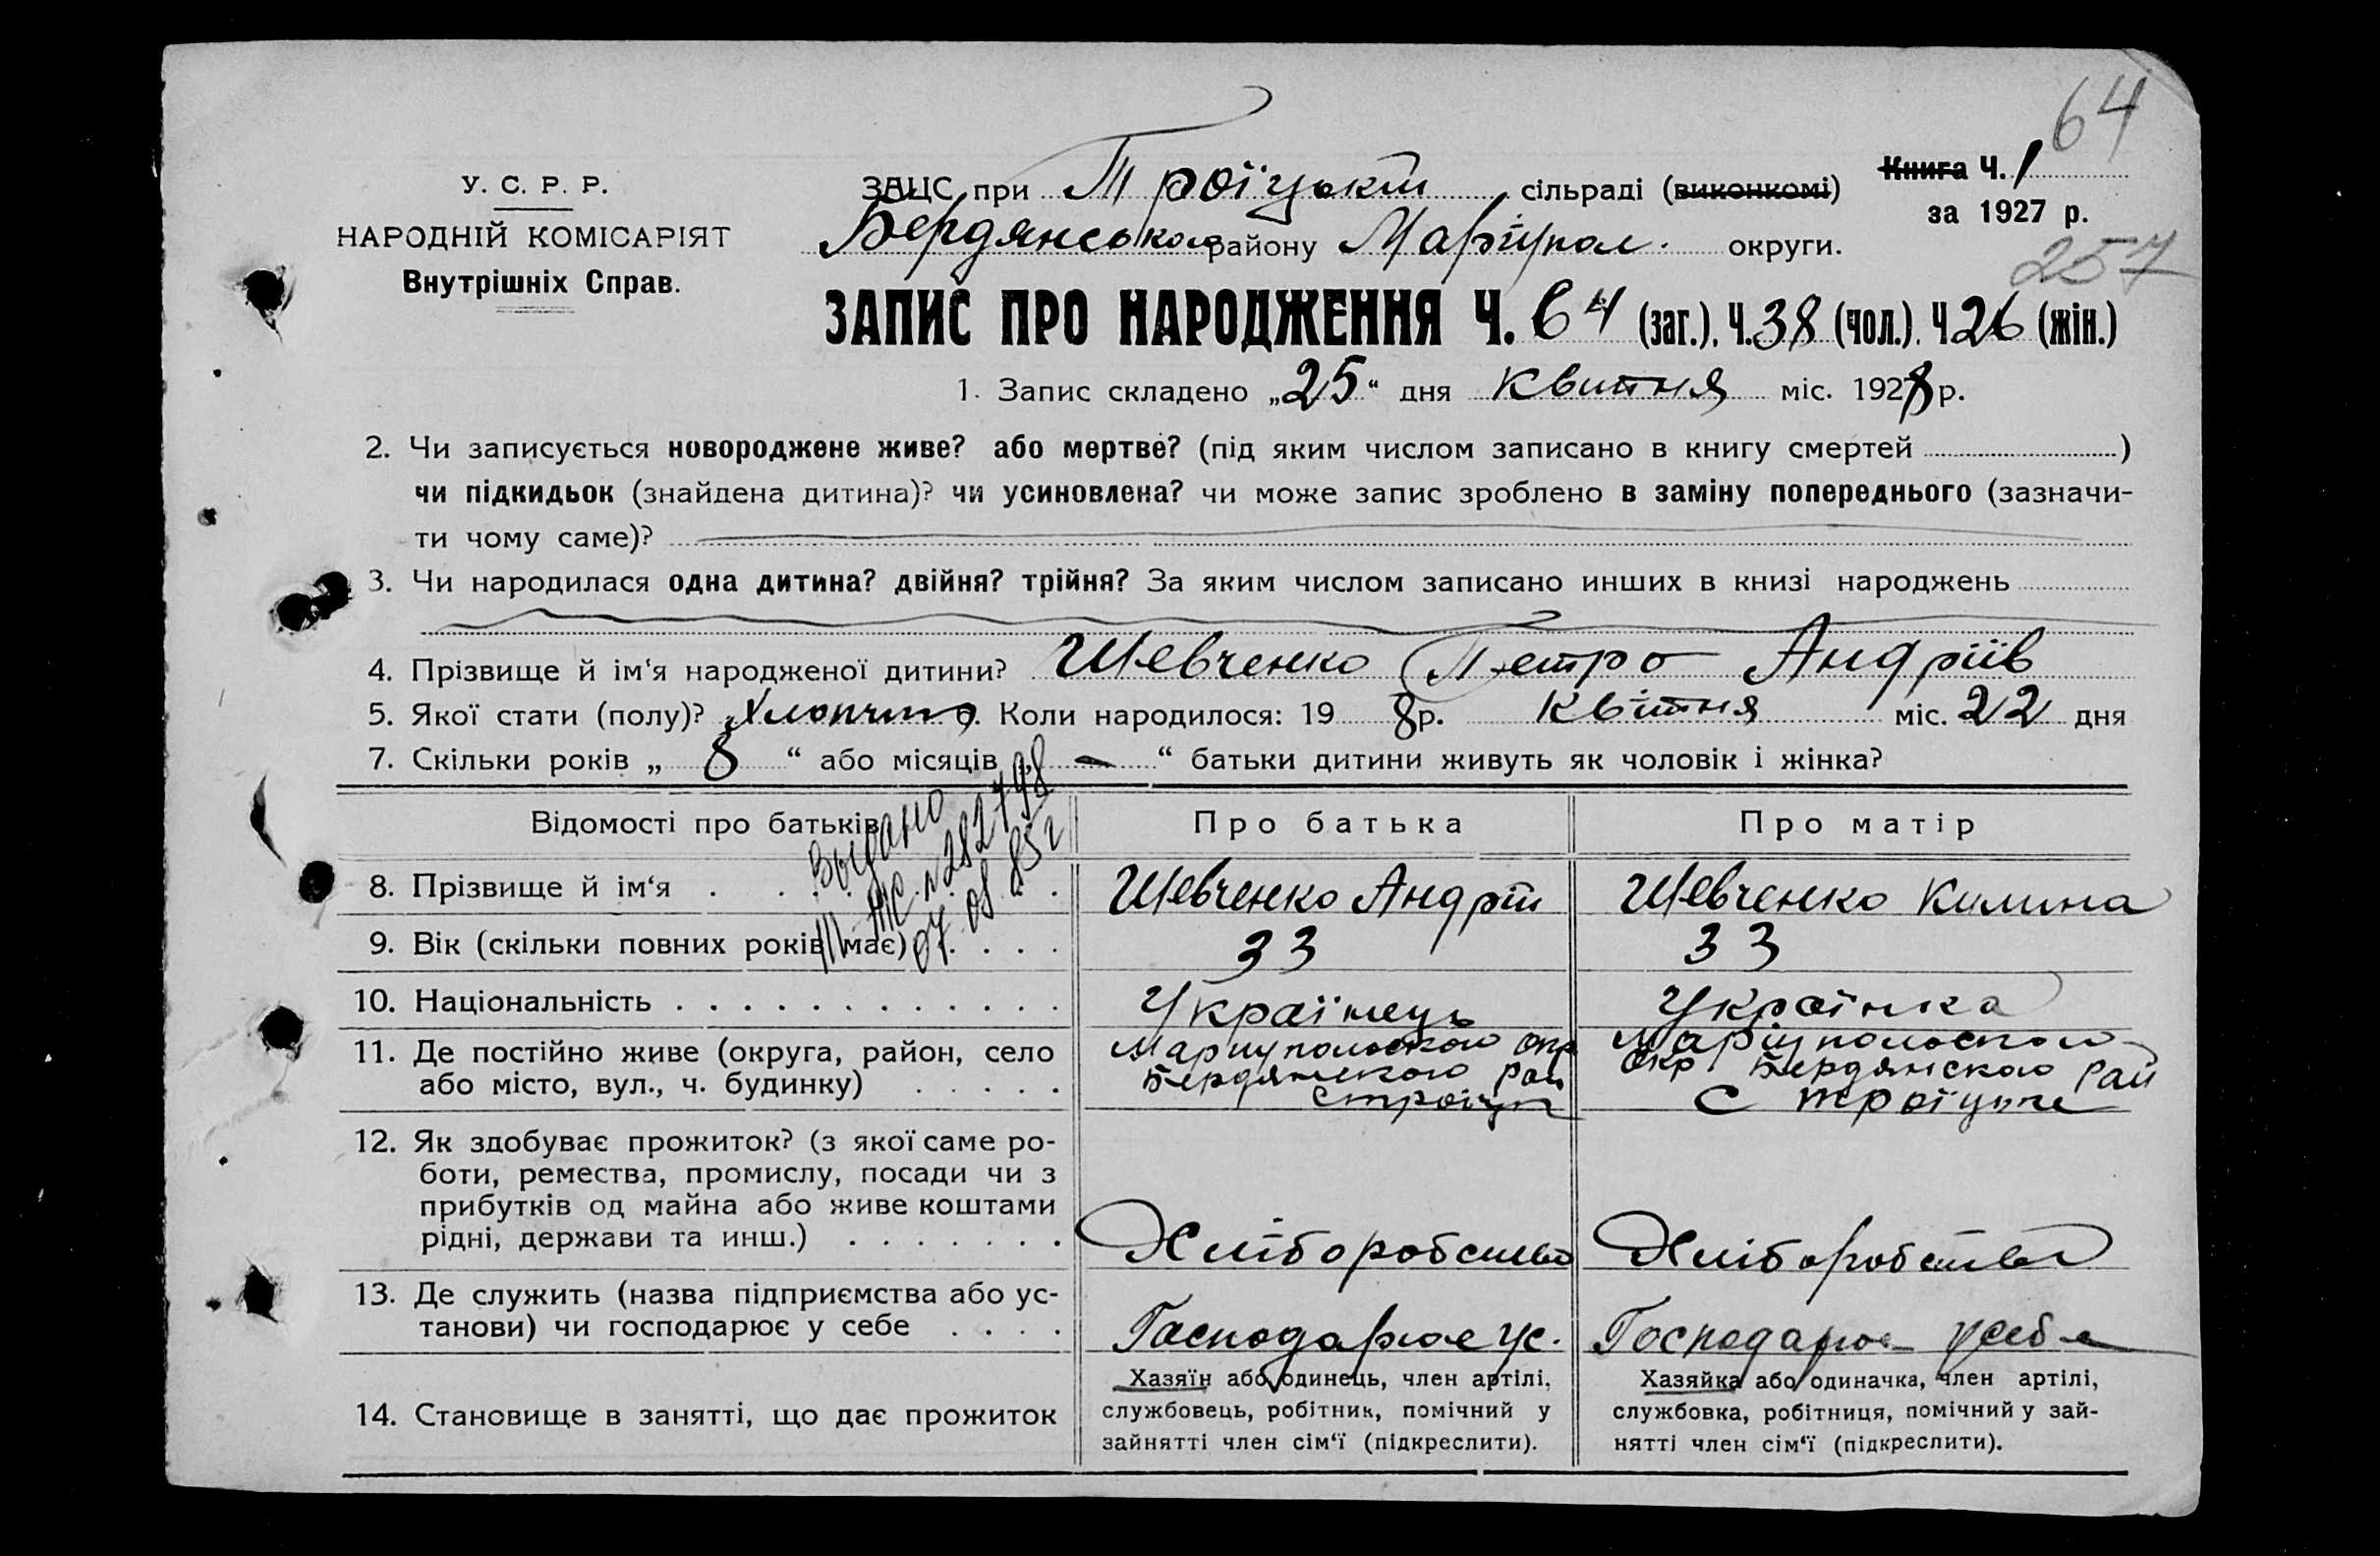 64
У. С. Р. Р.
НАРОДНІЙ КОМІСАРІЯТ
Внутрішніх Справ.
ЗАЦС при Троїцькій сільраді (виконкомі)
Книга Ч. 1
за 1927 р.
Бердянського району Маріупол. округи.
257
ЗАПИС ПРО НАРОДЖЕННЯ Ч. 64 (заг.), Ч. 38 (чол.), Ч 26 (жін.)
1. Запис складено „25“ дня Квитня міс. 1928 р.
2. Чи записується новороджене живе? або мертве? (під яким числом записано в книгу смертей )
чи підкидьок (знайдена дитина)? чи усиновлена? чи може запис зроблено в заміну попереднього (зазначи-
ти чому саме)?
3. Чи народилася одна дитина? двійня? трійня? За яким числом записано инших в книзі народжень
4. Прізвище й ім‘я народженої дитини? Шевченко Петро Андріїв
5. Якої стати (полу)? Хлопчик 6. Коли народилося: 19 8 р. Квітня міс. 22 дня
7. Скільки років „ 8 “ або місяців „ — “ батьки дитини живуть як чоловік і жінка?
Відомості про батьків Про батька Про матір
Выдано
III-ЖС №282798
07.08.85г
8. Прізвище й ім‘я Шевченко Андрій Шевченко Килина
9. Вік (скільки повних років має) 33 33
10. Національність Українець Українка
11. Де постійно живе (округа, район, село
або місто, вул., ч. будинку)
Мариупольского окр
Бердянского рай
с троіцк
Маріупольского
окр Бердянского рай
с троїцке
12. Як здобуває прожиток? (з якої саме ро-
боти, ремества, промислу, посади чи з
прибутків од майна або живе коштами
рідні, держави та инш.) Хліборобство Хліборобство
13. Де служить (назва підприємства або ус-
танови) чи господарює у себе Господарює у с. Господарює у себе
14. Становище в занятті, що дає прожиток
Хазяїн або одинець, член артілі,
службовець, робітник, помічний у
зайнятті член сім‘ї (підкреслити).
Хазяйка або одиначка, член артілі,
службовка, робітниця, помічний у зай-
нятті член сім‘ї (підкреслити).